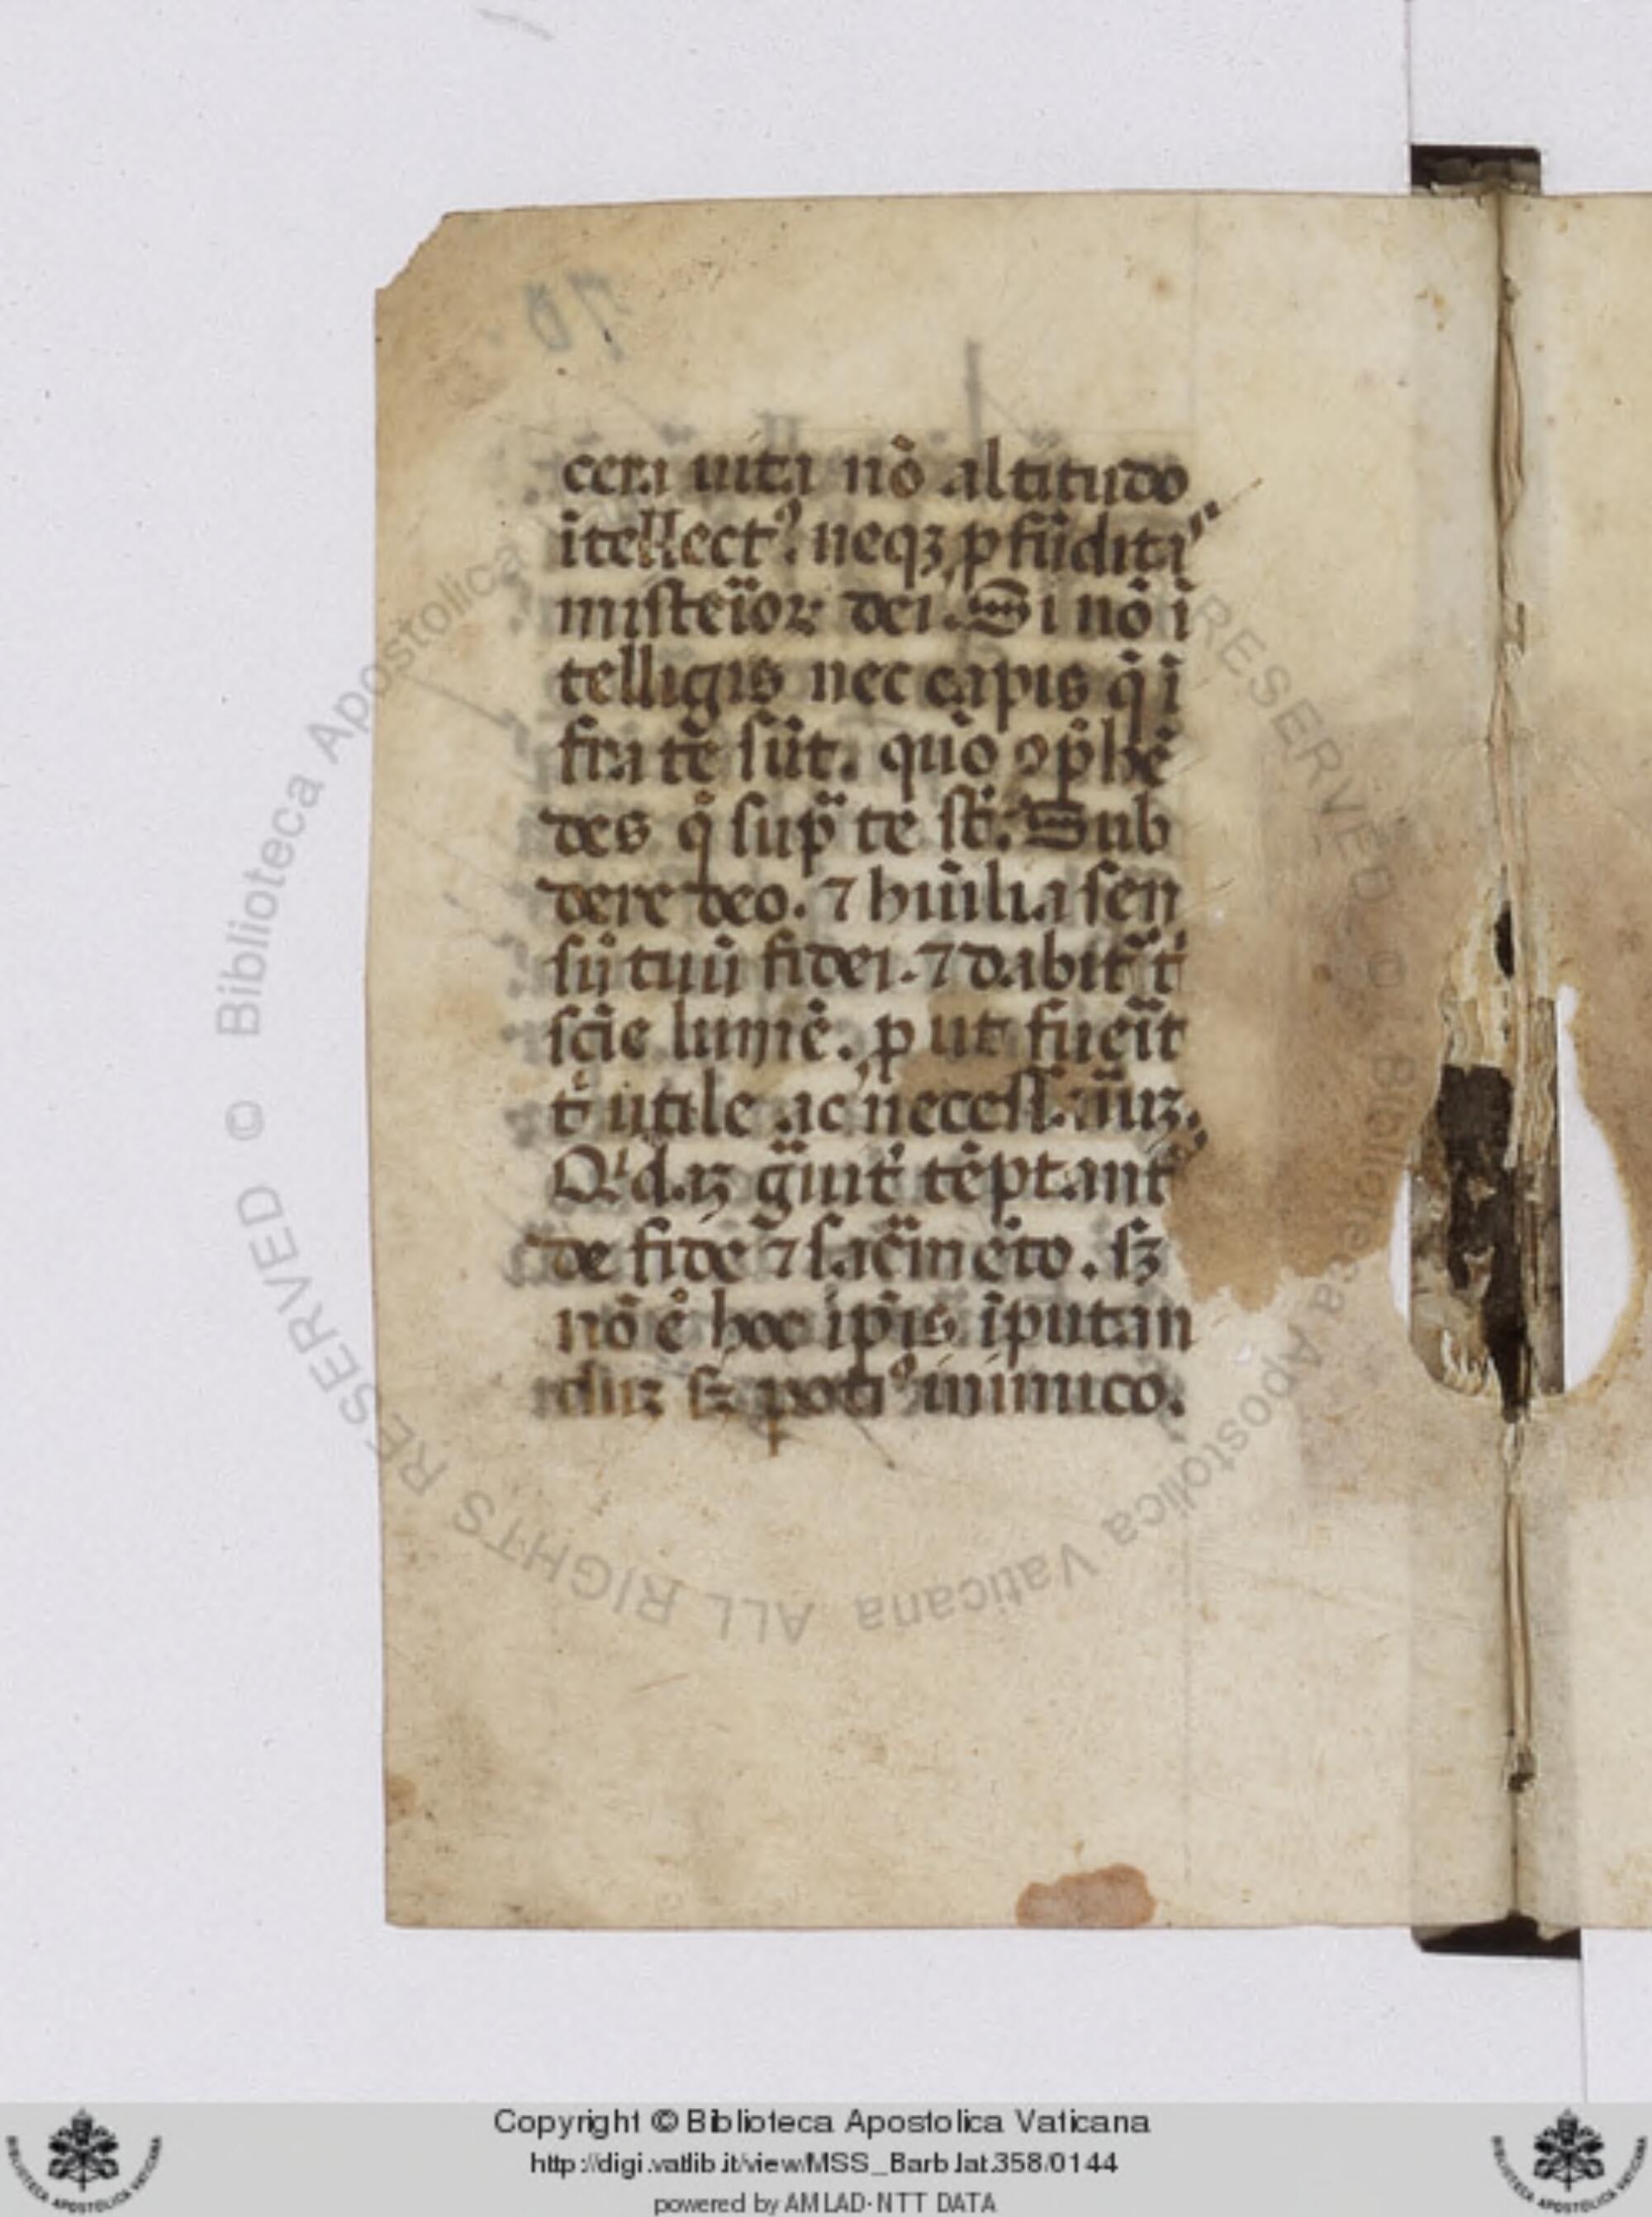 70.
cera uita nō altitudo
ītellectꝰ. neqꝫ ꝓfūdita
misteꝛioꝝ dei. Si nō ī
telligis nec capis q̄ ī
fra tē sūt. quō ꝯp̄hē
des q̊ sup̄ te st̄. Sub
dere deo. ⁊ hūilia sen
sū tuū fidei. ⁊ dabit̄ t̄
sc̄ie lumē. ꝓ ut fuei̇t
t̄ utile ac necessaiuꝫ.
Qⁱdaꝫ g̈uit̄ tēptant̄
de fide ⁊ sac̈mēto. sꝫ
nō ē hoc ip̄is īputan
duꝫ sꝫ potiꝰ inimico.
© Biblioteca Apostolica Vaticana ALL RIGHTS RESERVED
Copyright © Biblioteca Apostolica Vaticana
http://digi.vatlib.it/view/MSS_Barb.lat.358/0144
powered by AMLAD-NTT DATA